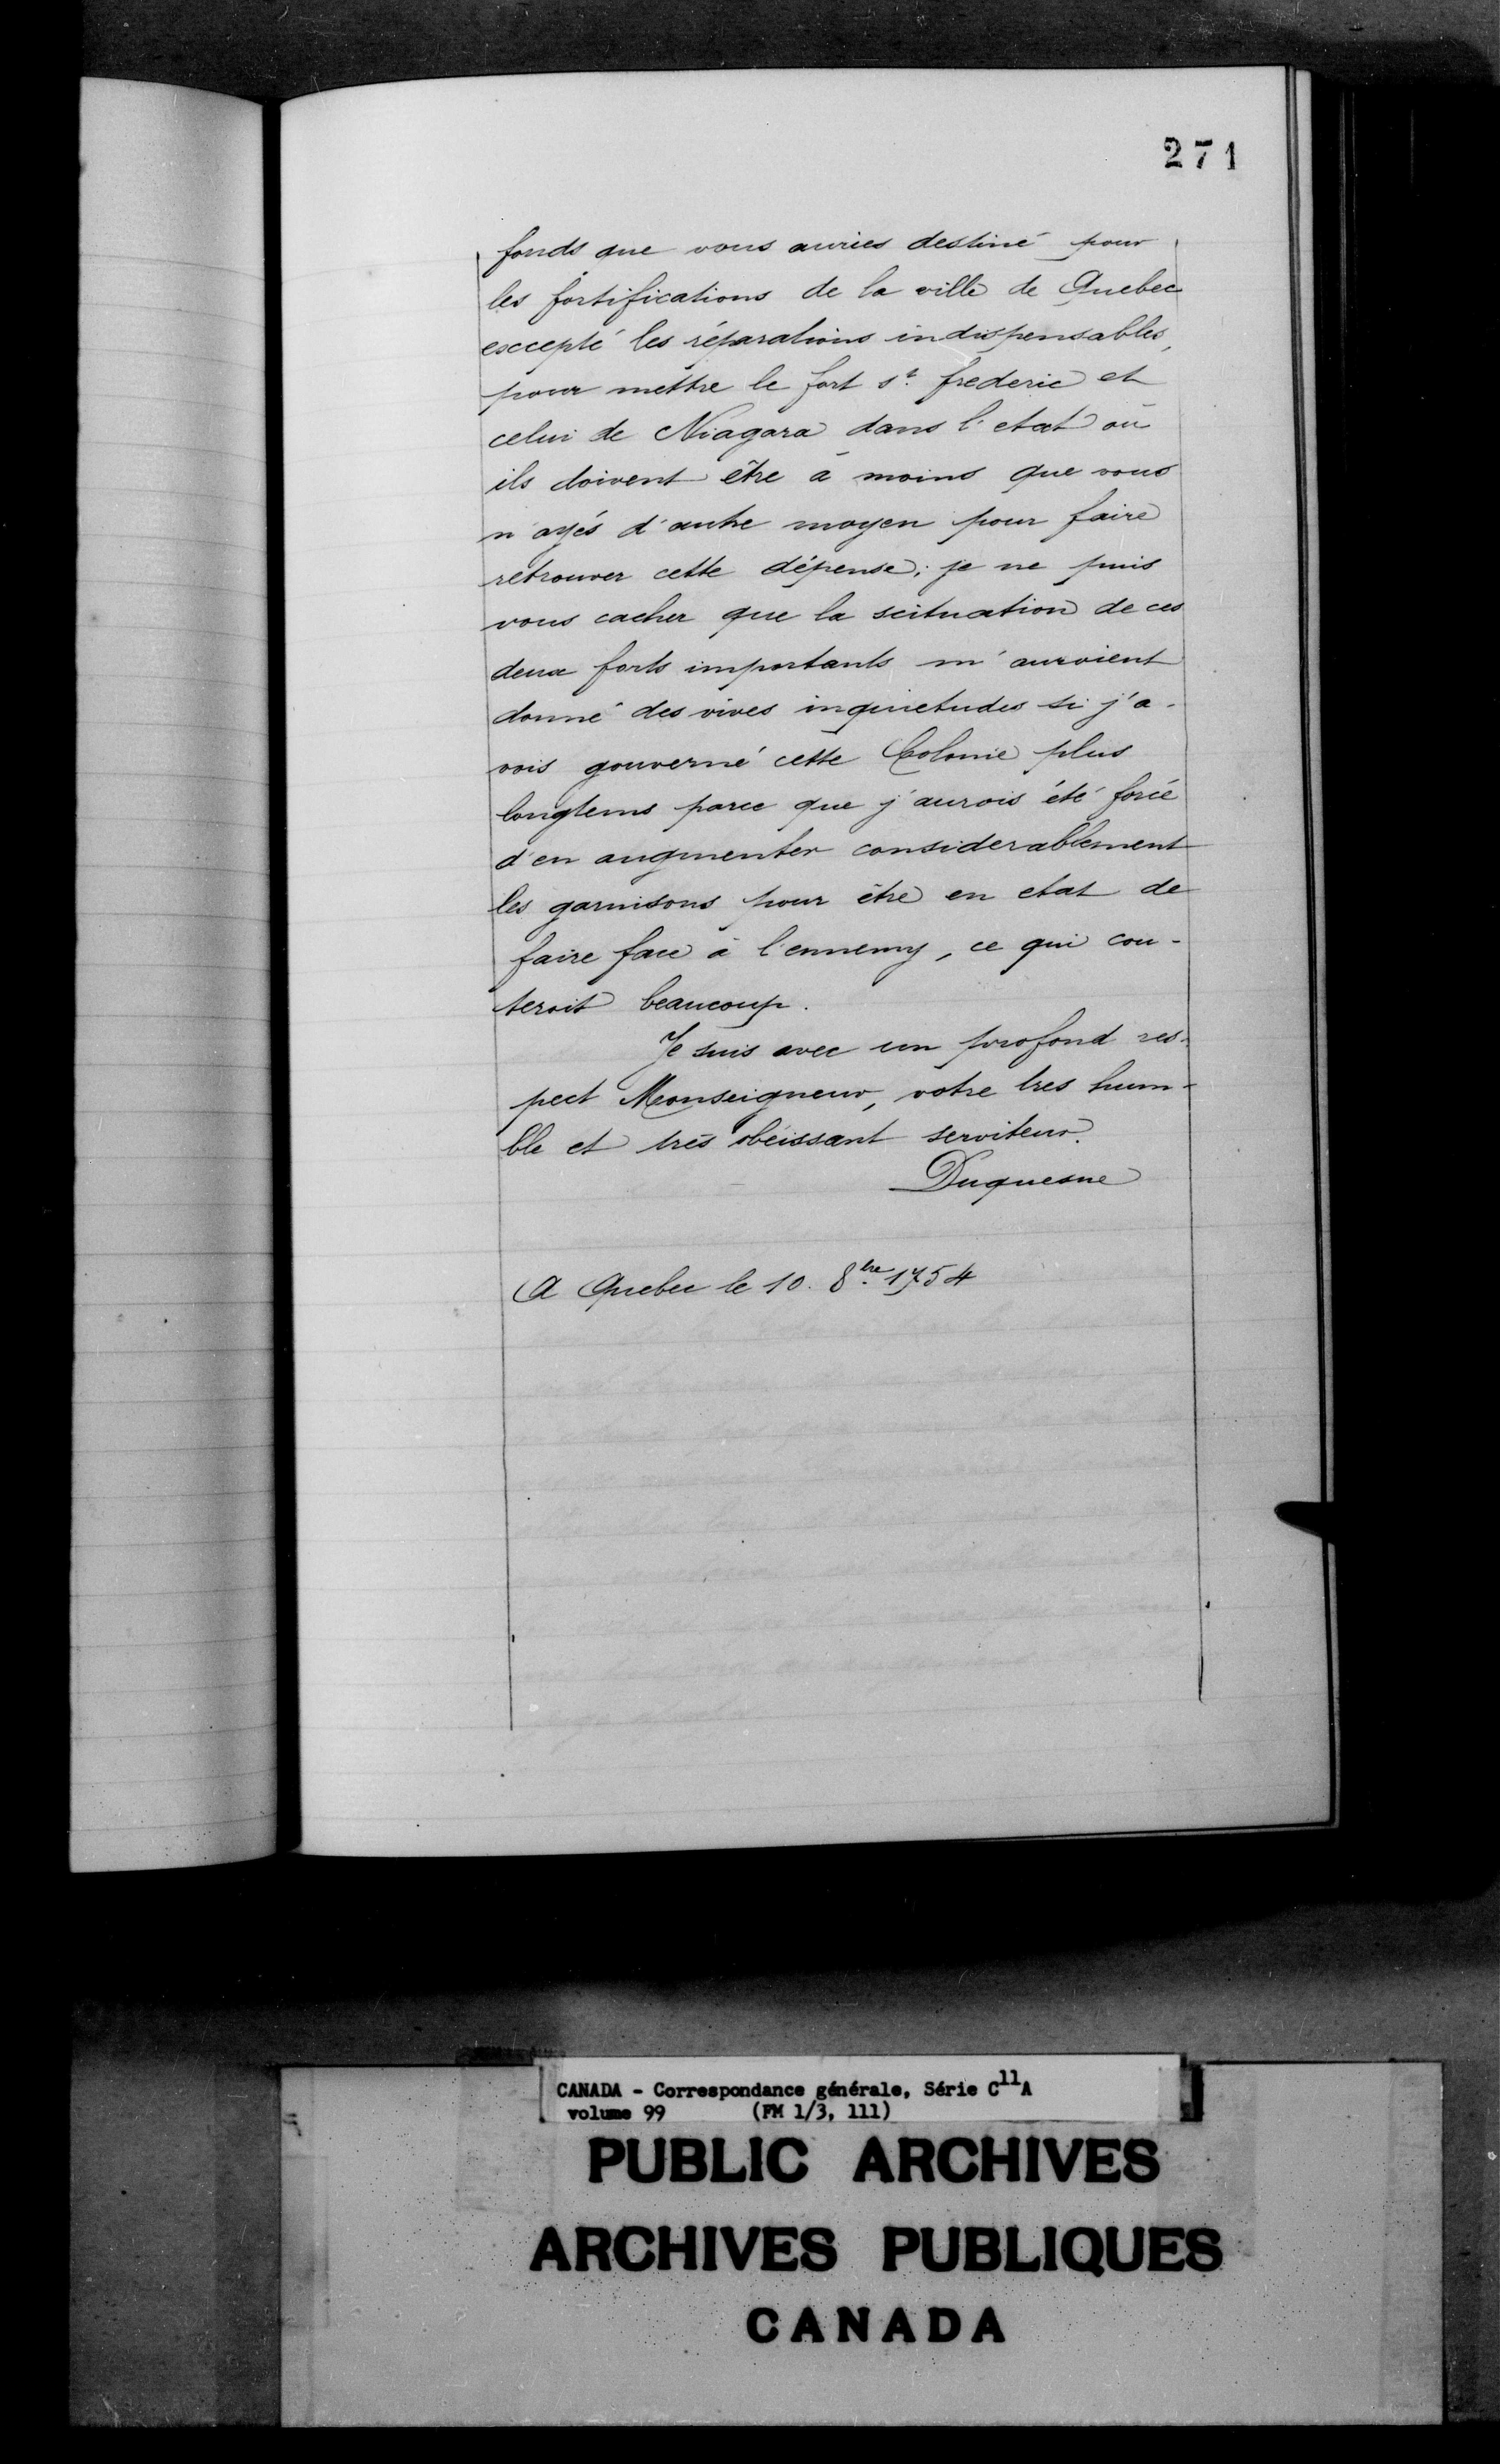 271
fonds que vous auries destiné pour
les fortifications de la ville de Quebec
exccepté les réparations indispensables,
pour mettre le fort st. frederic et
celui de Niagara dans l'etat où
ils doivent être à moins que vous
n'ayés d'autre moyen pour faire
retrouver cette dépense; je ne puis
vous cacher que la scituation de ces
deux forts importants m'auroient
donné des vives inquietudes si j'a-
vois gouverné cette Colonie plus
longtems parce que j'aurois été forcé
d'en augmenter considerablement
les garnisons pour être en etat de
faire face à l'ennemy, ce qui cou-
teroit beaucoup.
Je suis avec un profond res-
pect Monseigneur, votre tres hum-
ble et très obéissant serviteur.
Duquesne
A Quebec le 10. 8bre 1754
CANADA - Correspondance générale, Série C11A
volume 99 (FM 1/3, 111)
PUBLIC ARCHIVES
ARCHIVES PUBLIQUES
CANADA